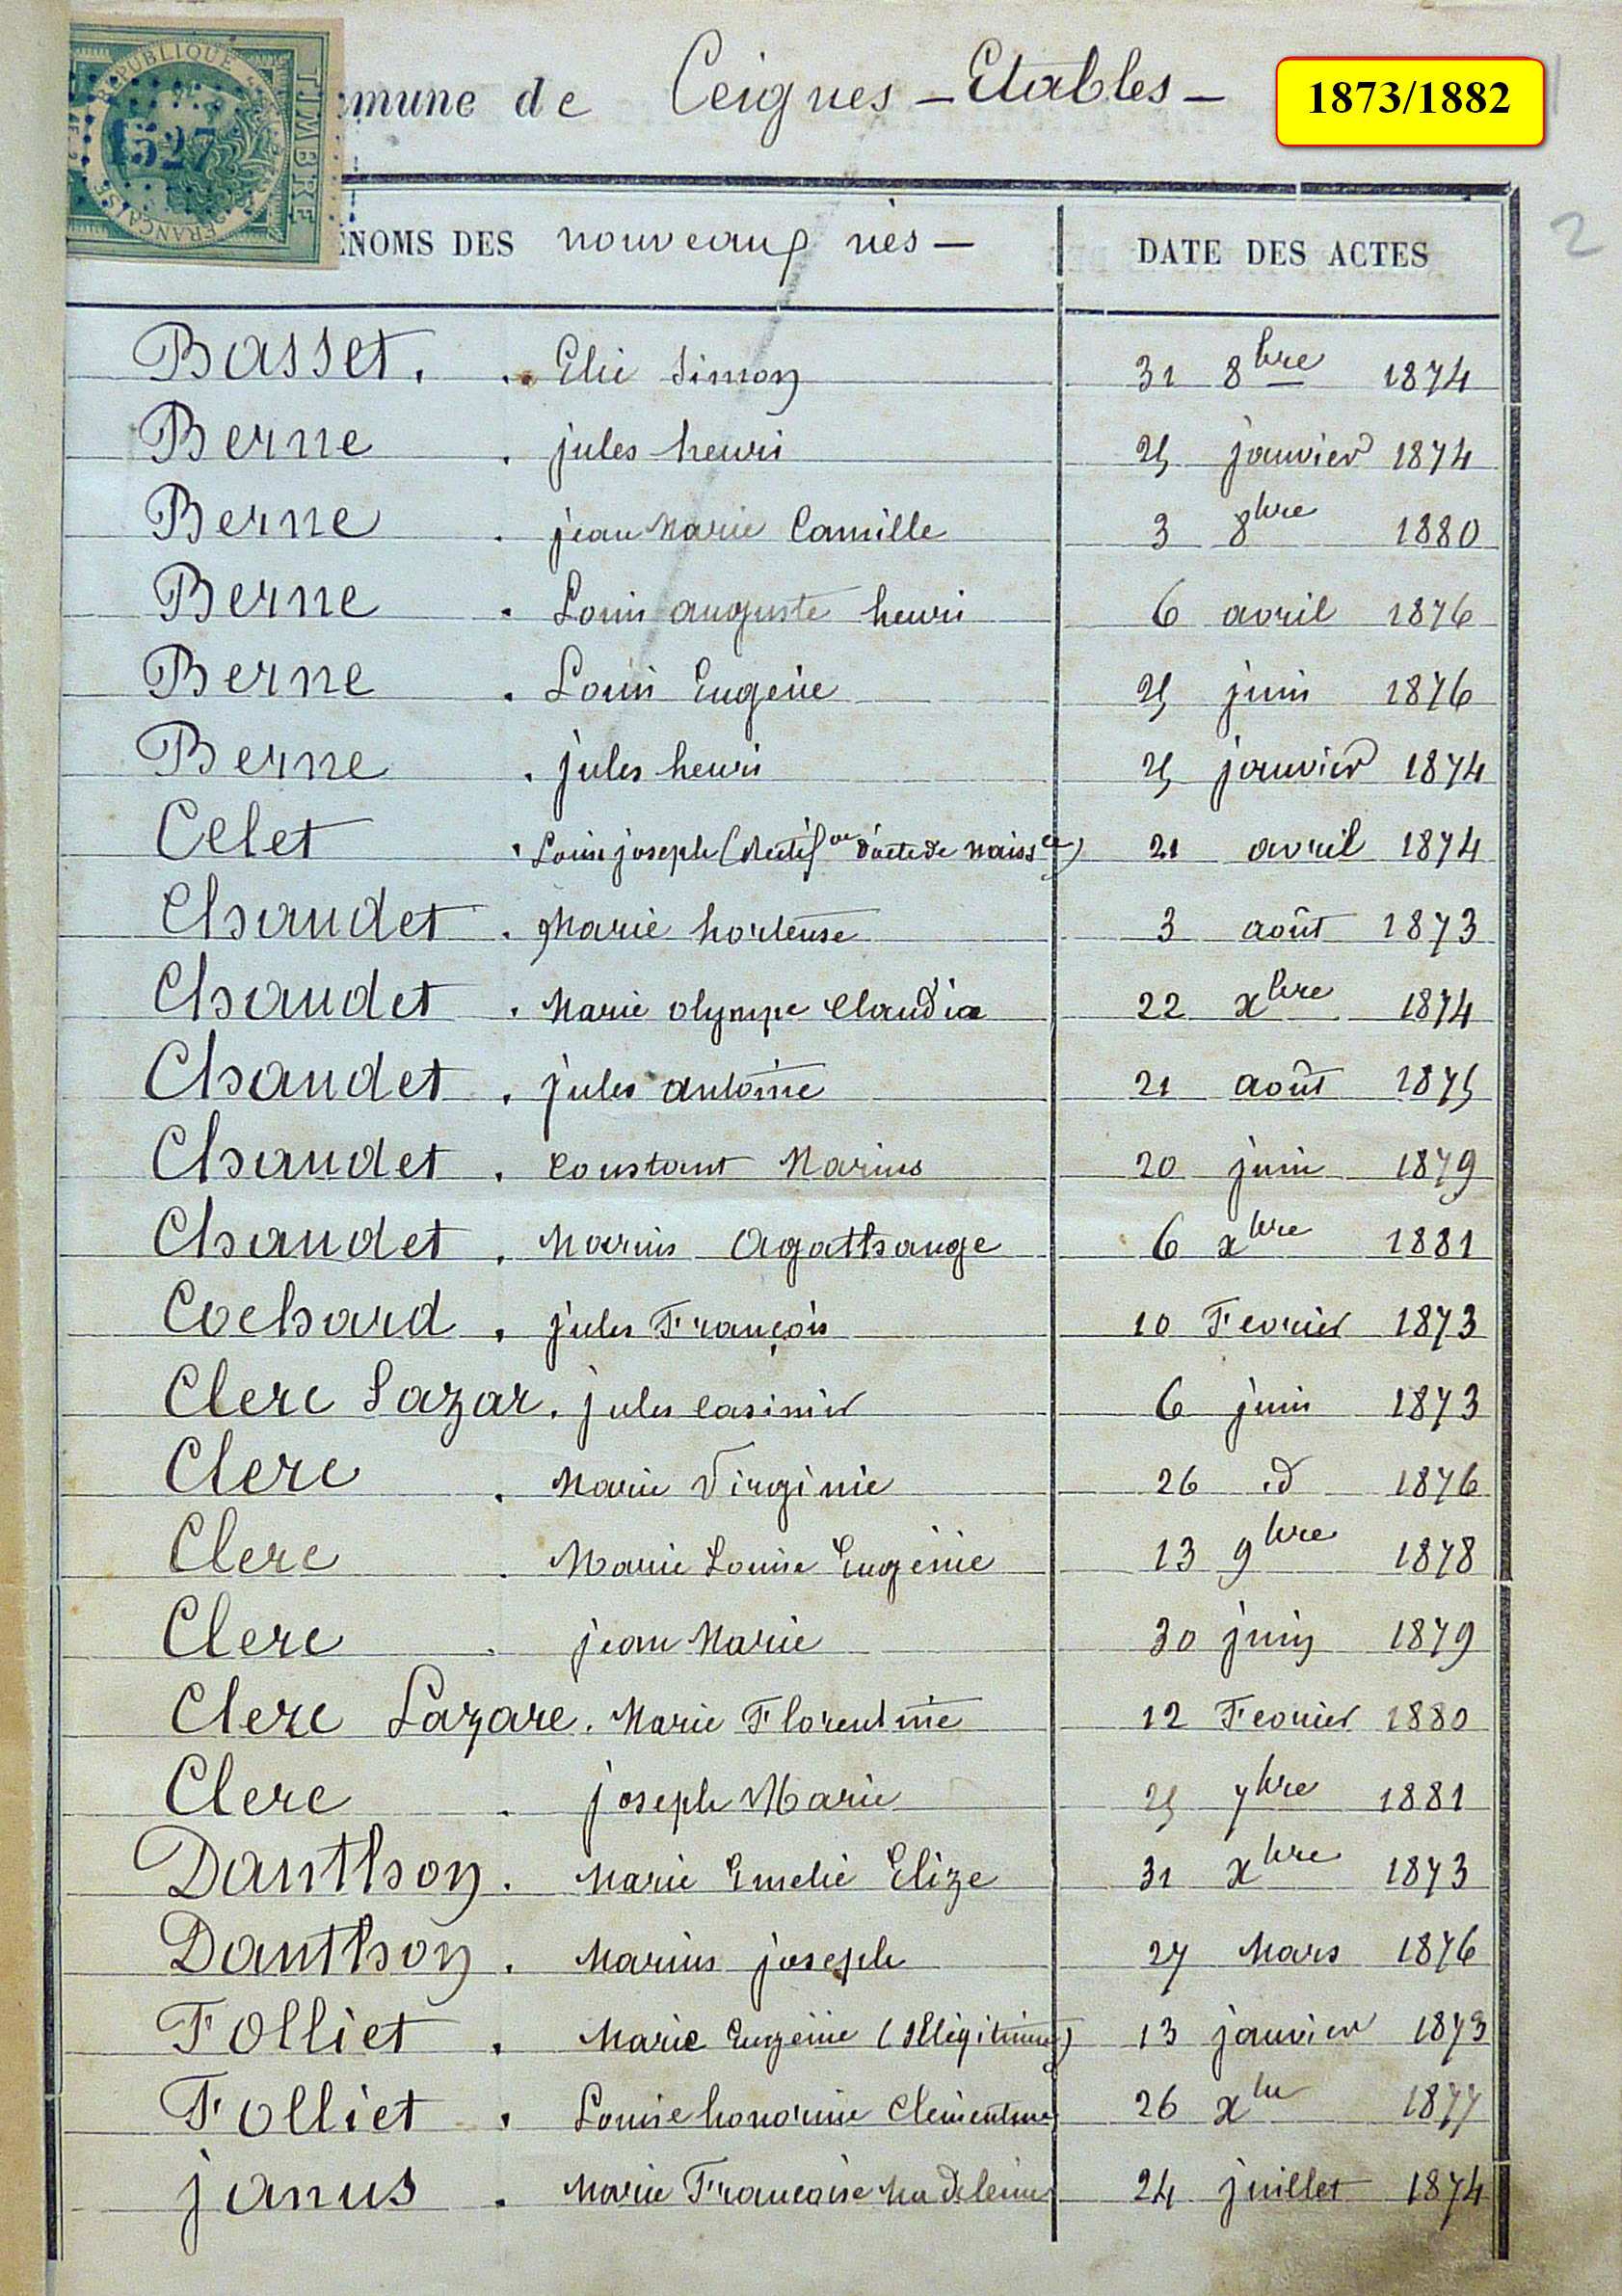 RÉPUBLIQUE FRANÇAISE
TIMBRE
1527
mmune de Ceignes - Etables -
1873/1882
2
ÉNOMS DES nouveaux nés — DATE DES ACTES
Basset . . Elie Simon 31 8bre 1874
Berne . jules henri 25 janvier 1874
Berne . jean Marie Camille 3 8bre 1880
Berne . Louis auguste henri 6 avril 1876
Berne . Louis Eugène 25 juin 1876
Berne . jules henri 25 janvier 1874
Celet . Louis joseph (Rectifon d'acte de naissce) 21 avril 1874
Chaudet . Marie hortense 3 août 1873
Chaudet . Marie olympe Claudia 22 xbre 1874
Chaudet . jules antoine 21 août 1875
Chaudet . Constant Marius 20 juin 1879
Chaudet . Marius Agathange 6 xbre 1881
Cochard . jules François 10 Fevrier 1873
Clerc Lazar . jules Casimir 6 juin 1873
Clerc . Marie Virginie 26 id 1876
Clerc . Marie Louise Eugénie 13 9bre 1878
Clerc . jean Marie 30 juin 1879
Clerc Lazare . Marie Florentine 12 Fevrier 1880
Clerc . joseph Marie 25 7bre 1881
Danthon . Marie Emelie Elize 31 xbre 1873
Danthon . Marius joseph 27 Mars 1876
Folliet . Marie Eugénie (Illégitime) 13 janvier 1873
Folliet . Louise honorine Clémentine 26 xbre 1877
janus . Marie Francoise Madeleine 24 juillet 1874